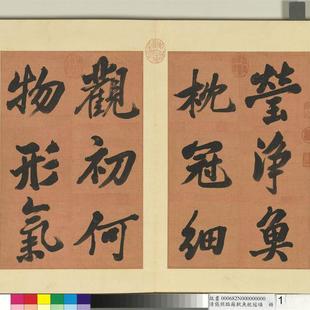 瑩淨魚
枕冠細
觀初何
物形氣
故書 000682N000000000
1